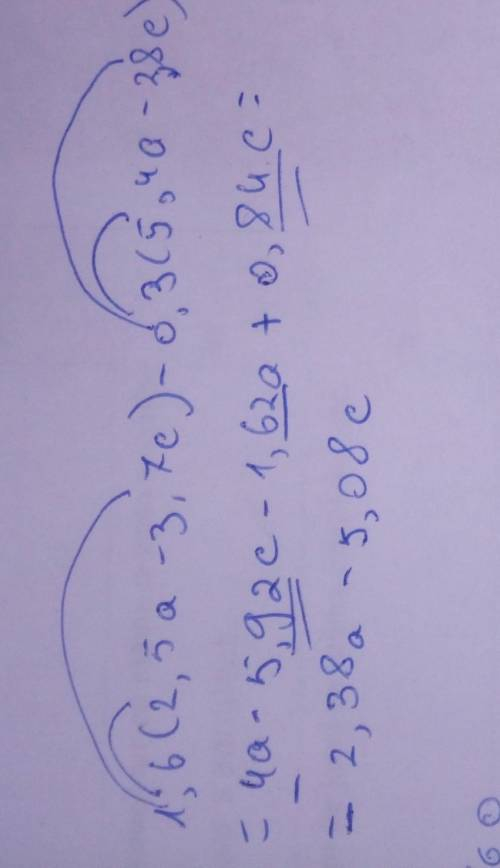 1,6(2,5a - 3,7c) - 0,3(5,4a - 3,8c)
= 4a - 5,92c - 1,62a + 0,84c =
= 2,38a - 5,08c